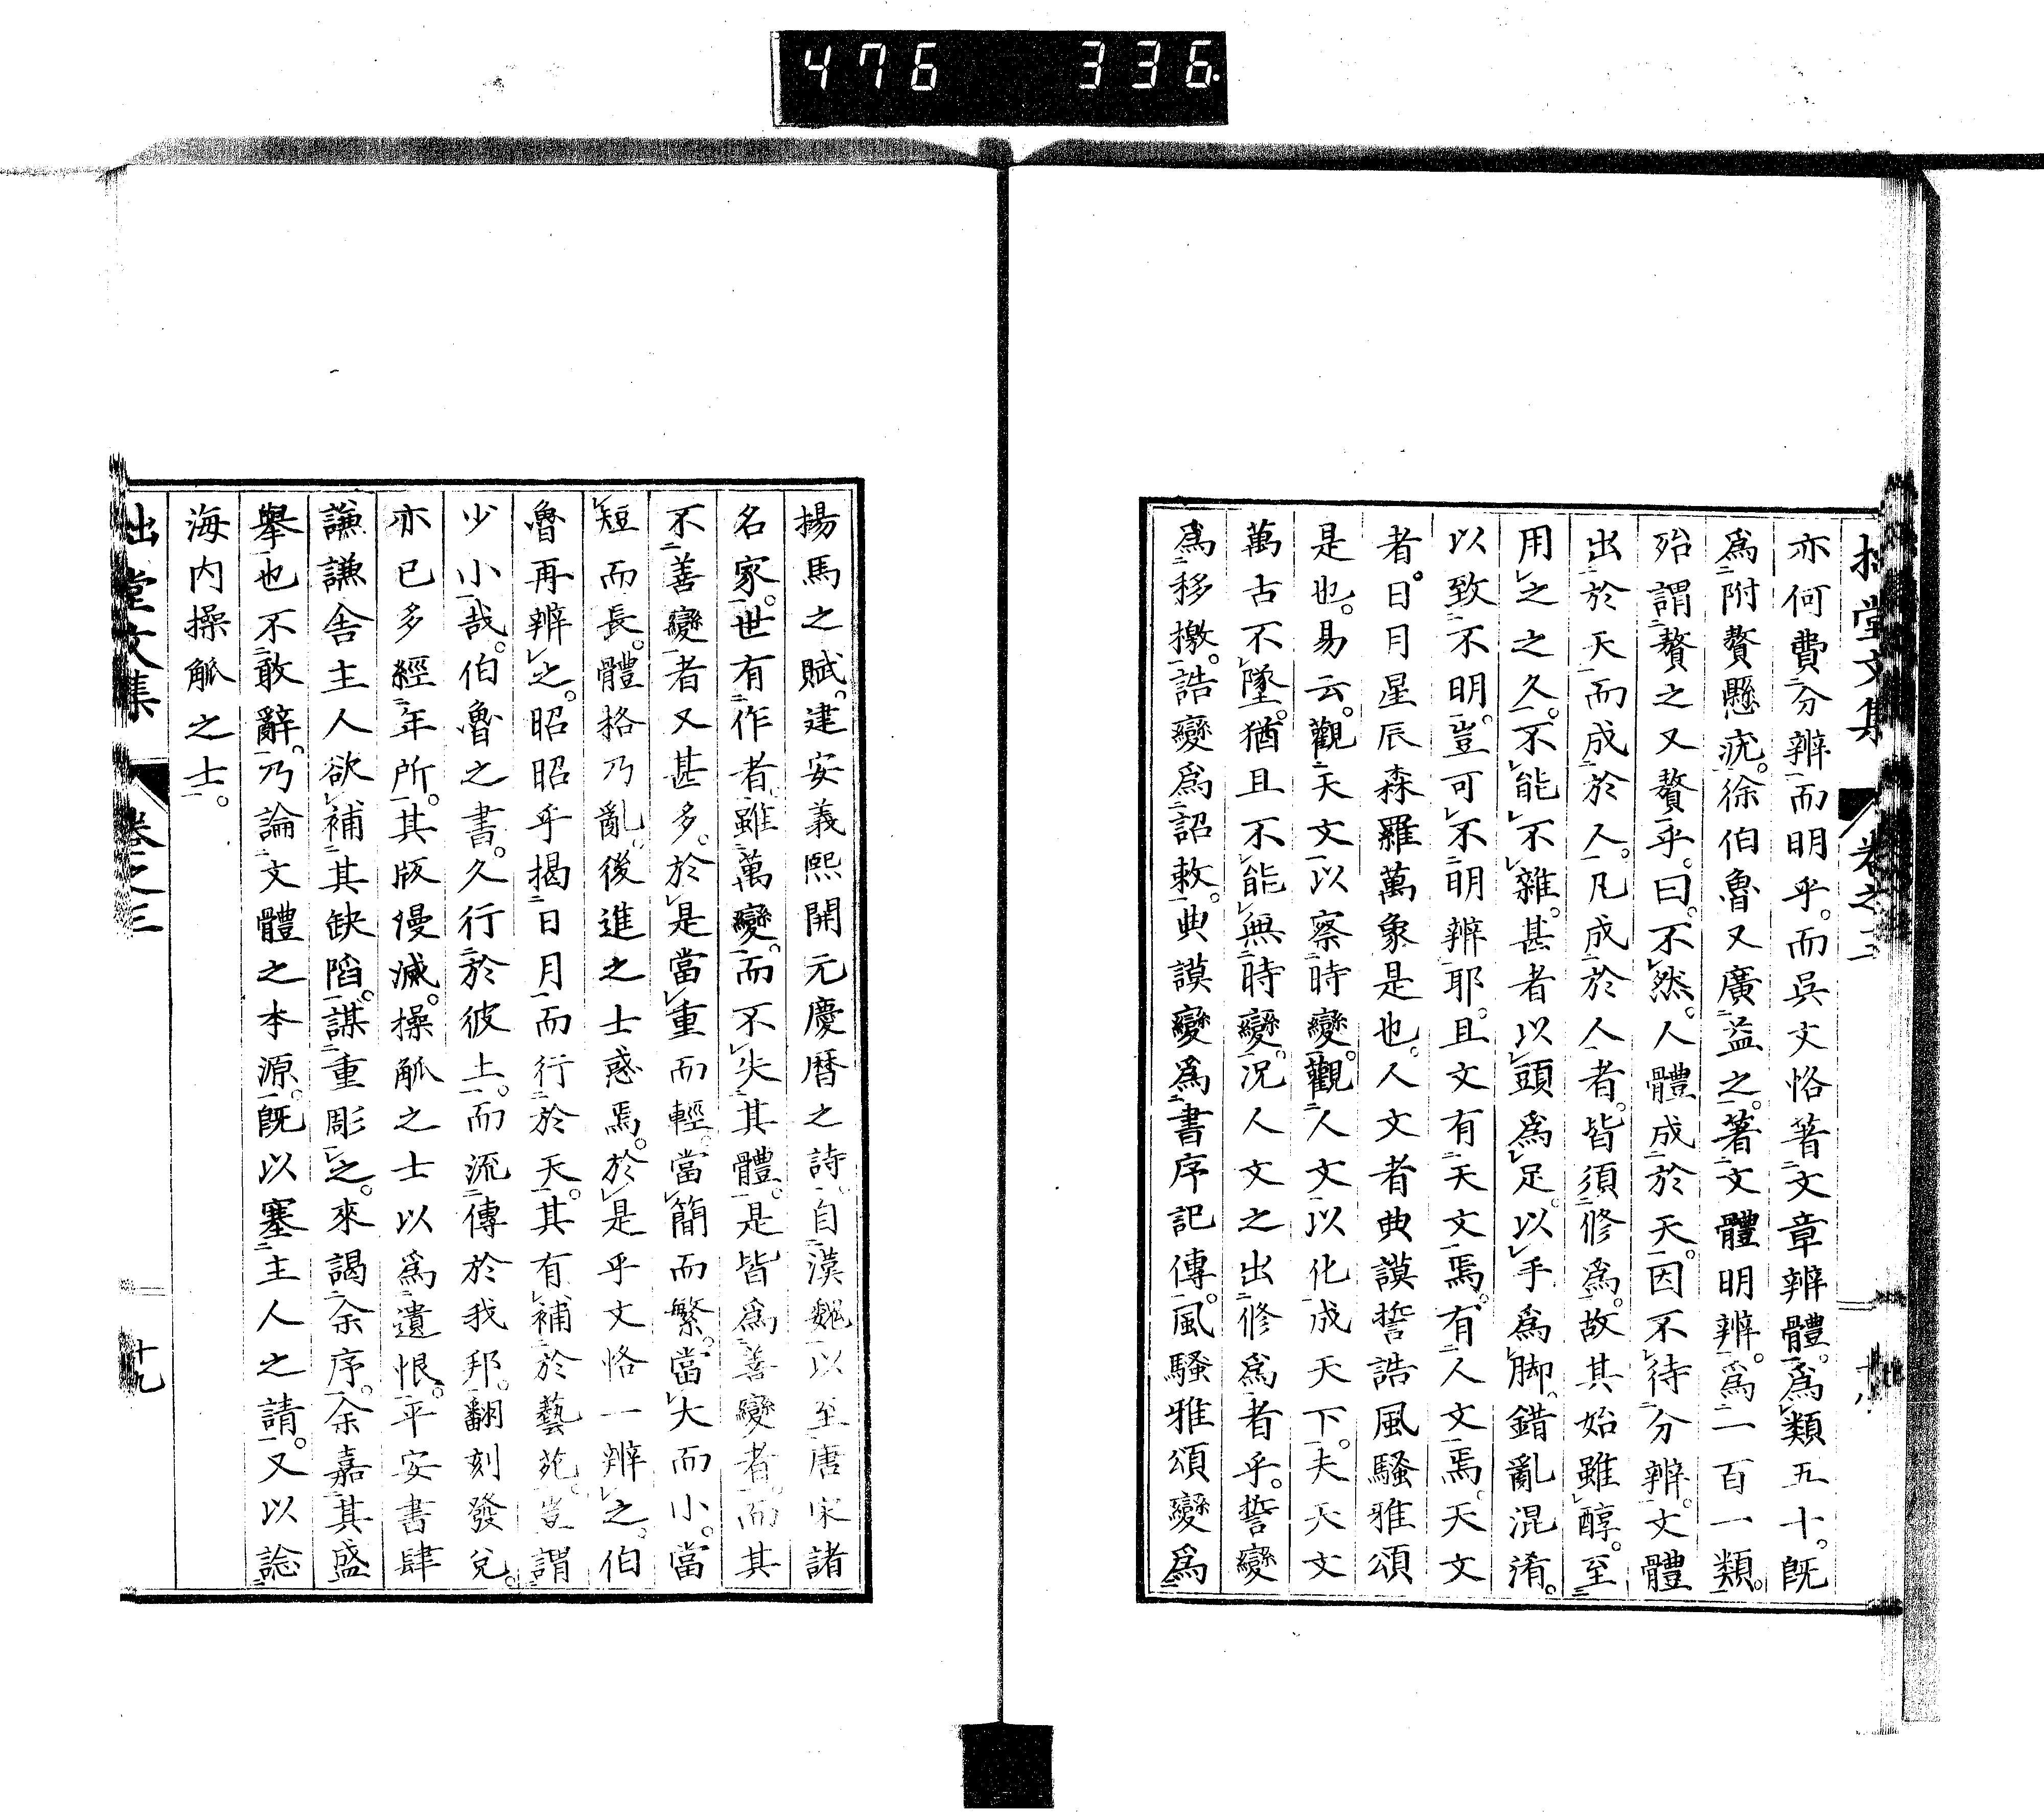 476 336
堂文集 卷之三
亦何費分辨而明乎。而呉文恪著文章辨體。爲類五十。既
爲附贅懸疣。徐伯魯又廣益之。著文體明辨。爲一百一類。
殆謂贅之又贅乎。曰。不然。人體成於天。因不待分辨。文體
出於天而成於人。凡成於人者。皆須修爲。故其始雖醇。至
用之之久。不能不雜。甚者以頭爲足。以手爲脚。錯亂混淆。
以致不明。豈可不明辨耶。且文有天文焉。有人文焉。天文
者。日月星辰森羅萬象是也。人文者典謨誓誥風騷雅頌
是也。易云。觀天文以察時變。觀人文以化成天下。夫天文
萬古不墜。猶且不能無時變。況人文之出修爲者乎。誓變
爲移檄。誥變爲詔敕。典謨變爲書序記傳。風騷雅頌變爲
揚馬之賦。建安義熙開元慶曆之詩。自漢魏以至唐宋諸
名家。世有作者。雖萬變。而不失其體。是皆爲善變者。而其
不善變者又甚多。於是當重而輕。當簡而繁。當大而小。當
短而長。體格乃亂。後進之士惑焉。於是乎文恪一辨之。伯
魯再辨之。昭昭乎揭日月而行於天。其有補於藝苑。豈謂
少小哉。伯魯之書。久行於彼土。而流傳於我邦。翻刻發兌。
亦已多經年所。其版熳滅。操觚之士以爲遺恨。平安書肆
謙謙舎主人欲補其缺陷。謀重彫之。來謁余序。余嘉其盛
擧也不敢辭。乃論文體之本源。既以塞主人之請。又以諗
海内操觚之士。
堂文集 卷之三 十九